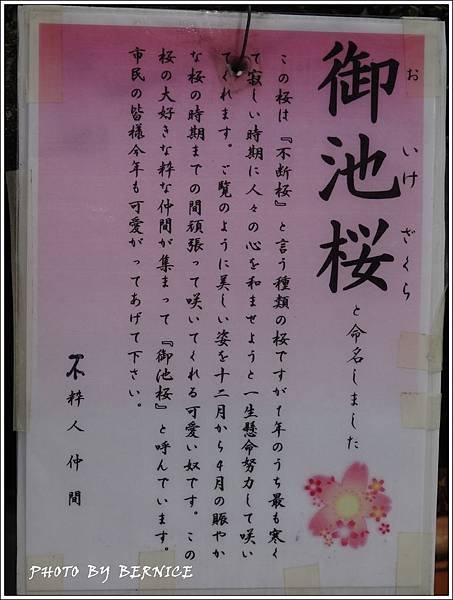 御池桜
おいけざくら
と命名しました
この桜は『不断桜』と言う種類の桜ですが1年のうち最も寒く
て寂しい時期に人々の心を和ませようと一生懸命努力して咲い
てくれます。ご覧のように美しい姿を十二月から4月の賑やか
な桜の時期までの間頑張って咲いてくれる可愛い奴です。この
桜の大好きな粋な仲間が集まって『御池桜』と呼んでいます。
市民の皆様今年も可愛がってあげて下さい。
不粋人仲間
PHOTO BY BERNICE